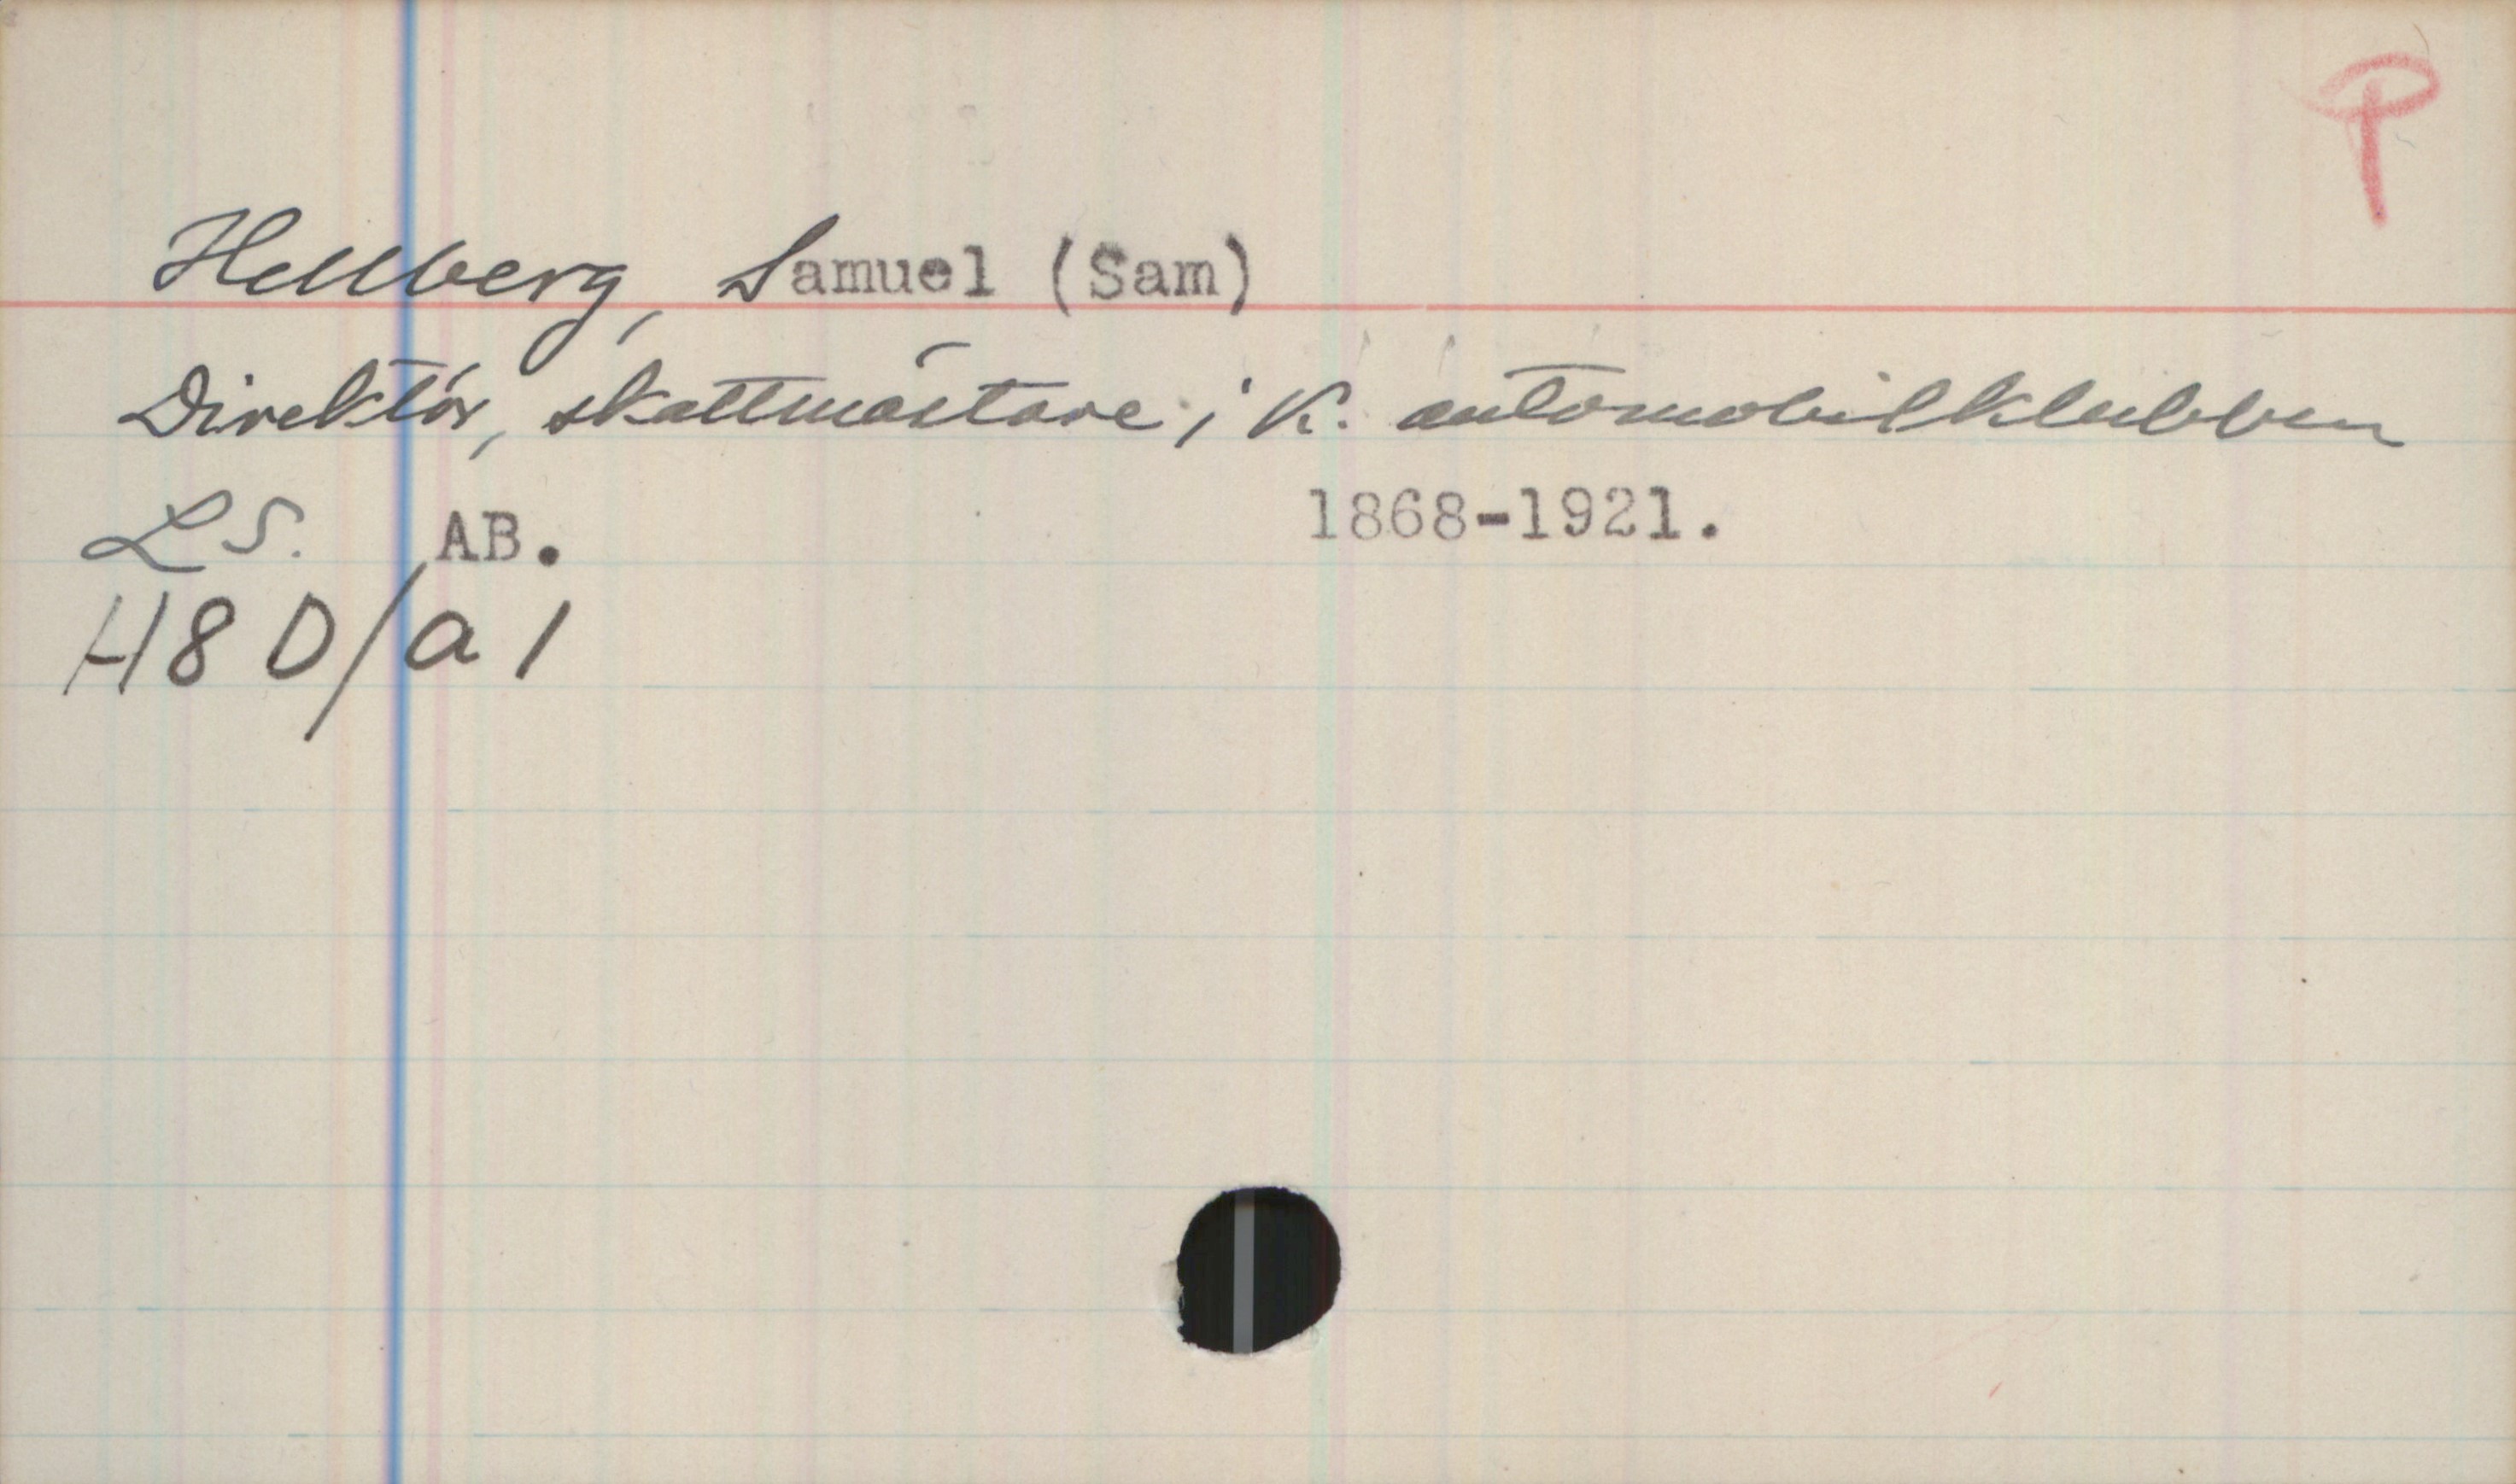 P
Hellberg, Samuel (Sam)
Direktör, skattmästare i K. automobilklubben
LS. AB. 1868-1921.
H8 D/a 1